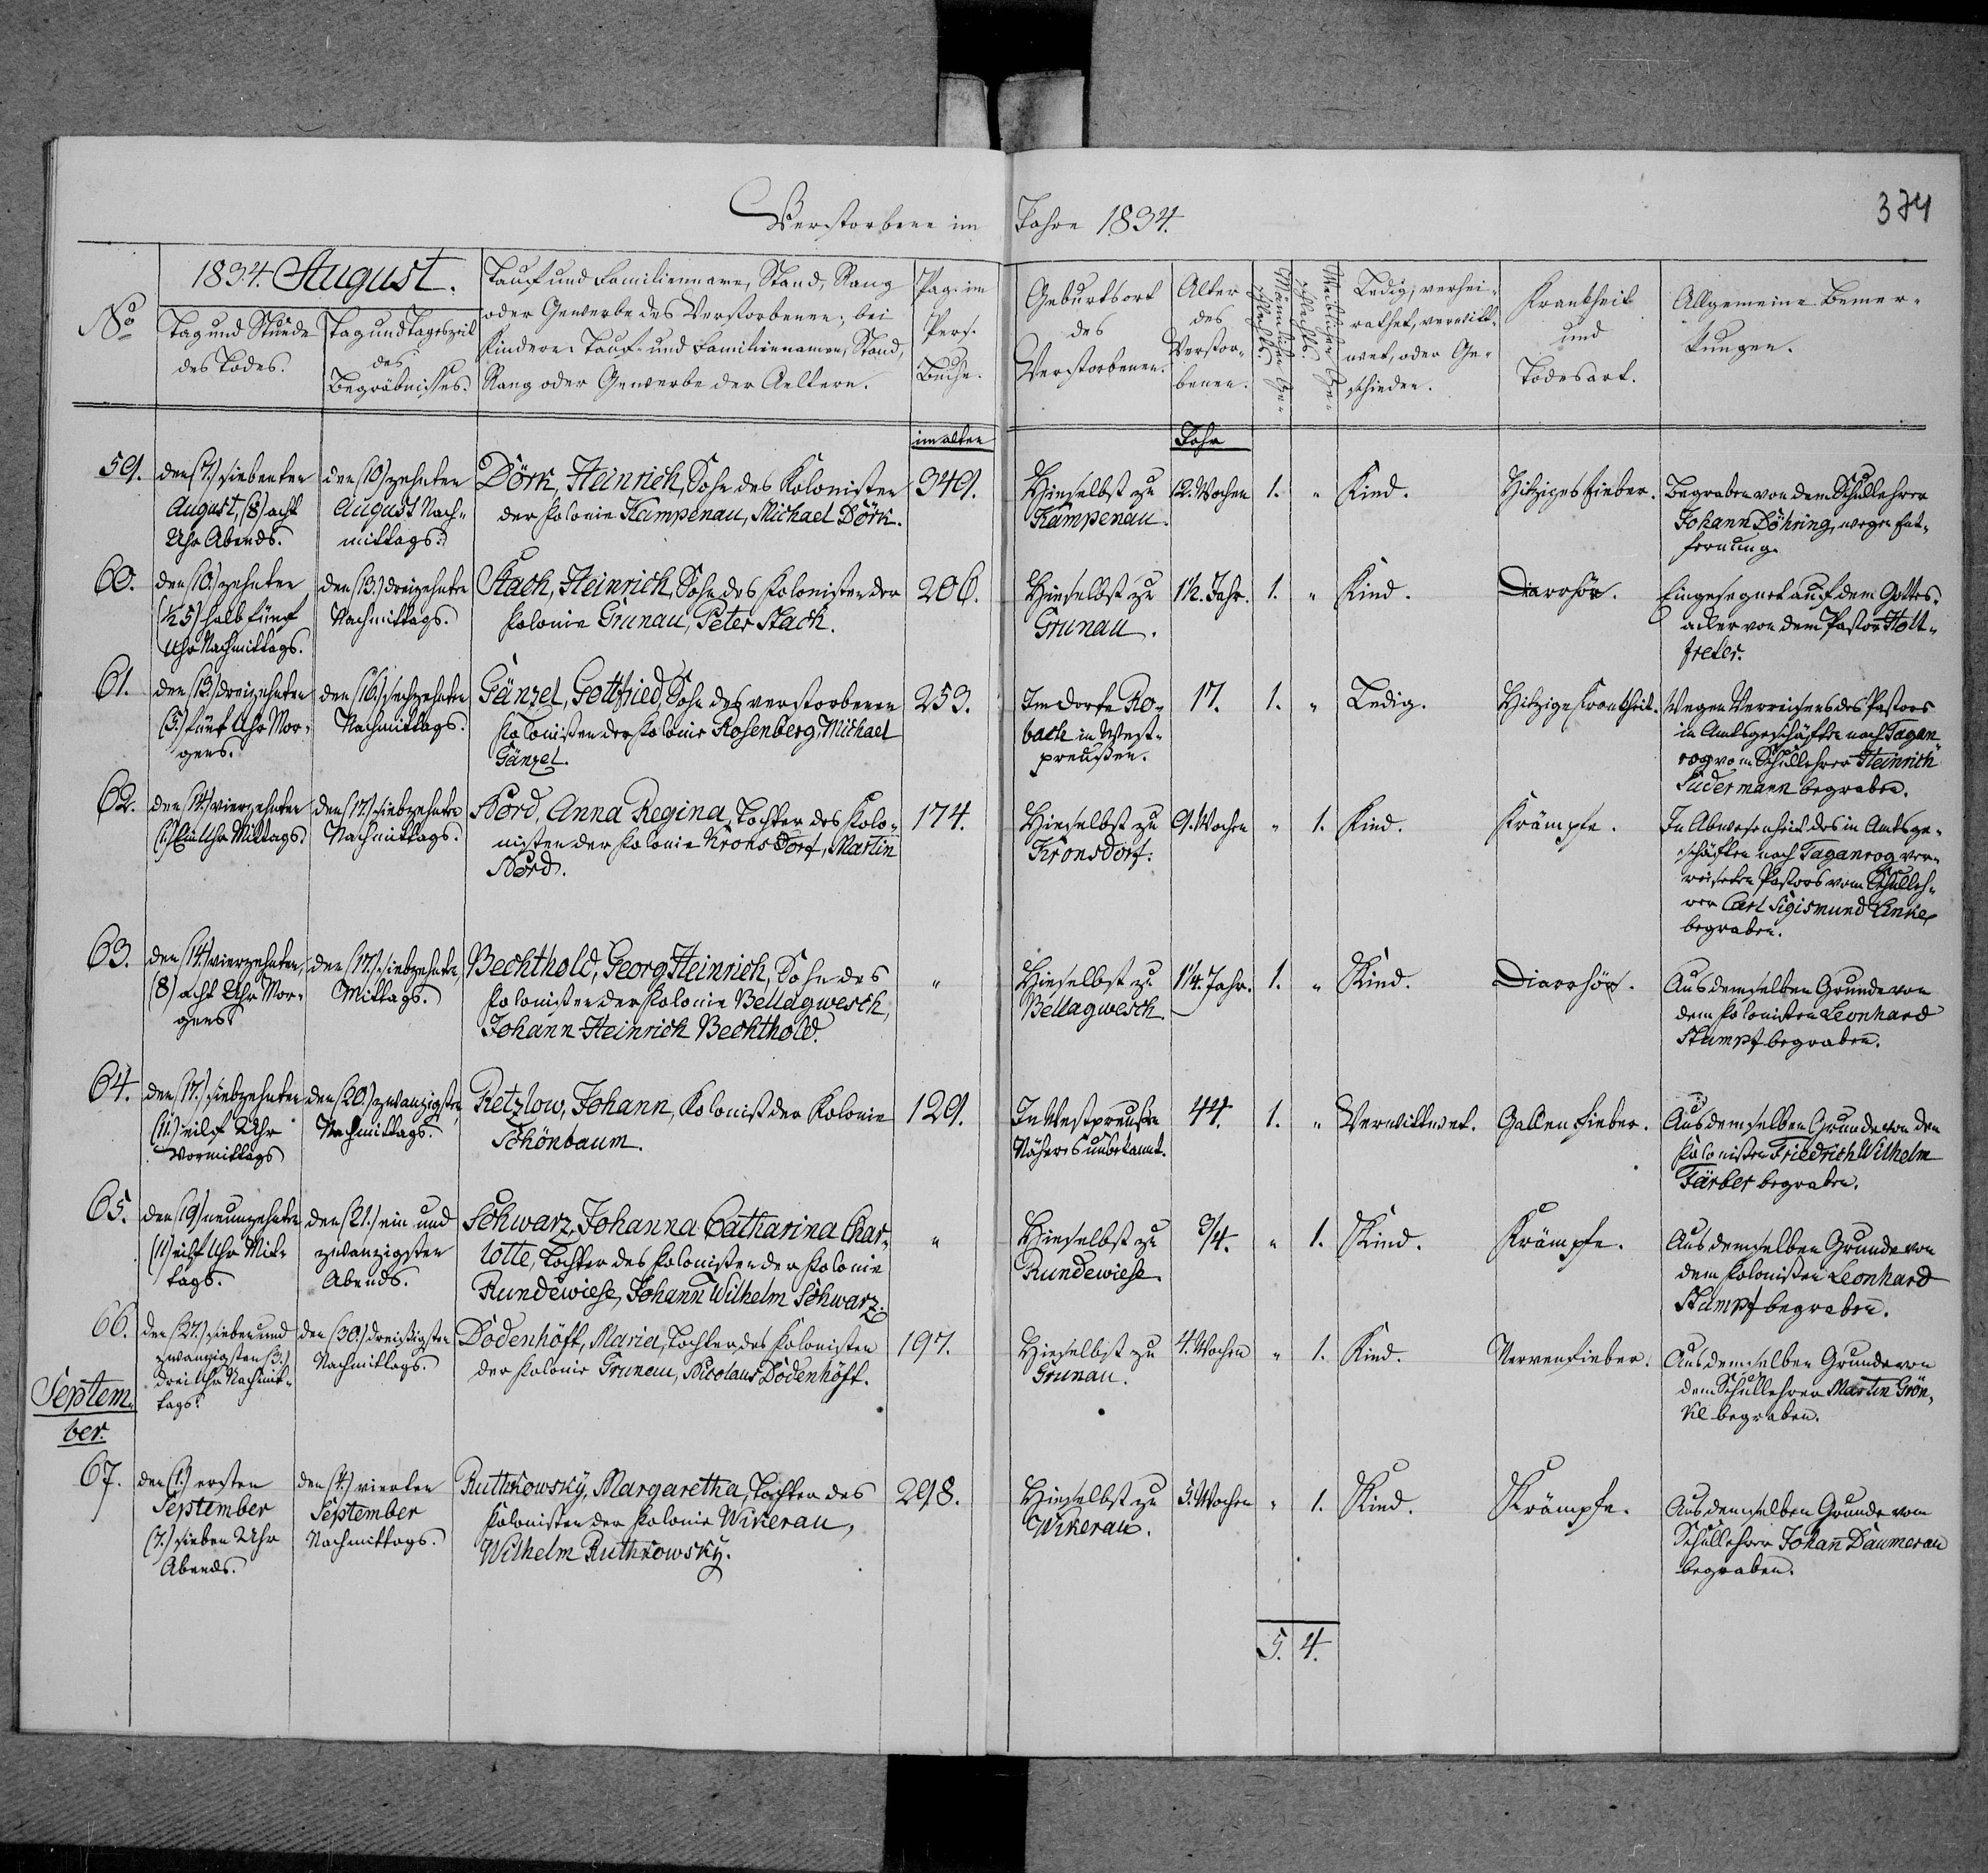 374
Verstorbene im Jahre 1834.
No
1834. August.
Tag und Stunde
des Todes.
Tag und Tageszeit
des
Begräbnisses.
Tauf und Familienname, Stand, Rang
oder Gewerbe des Verstorbenen; bei
Kindern: Tauf- und Familiennamen, Stand,
Rang oder Gewerbe der Aeltern.
Pag. im
Pers.
Buche.
Geburtsort
des
Verstorbenen.
Alter
des
Verstor-
benen.
Männlichen Ge-
schlechts.
Weiblichen Ge-
schlechts.
Ledig, verhei-
rathet, verwitt-
wet, oder Ge-
schieden.
Krankheit
und
Todesart.
Allgemeine Bemer-
kungen.
im alten
Jahr
59.
den (7.) siebenten
August, (8) acht
Uhr Abends.
den (10) zehnten
August Nach-
mittags.
Dörk, Heinrich, Sohn des Kolonisten
der Kolonie Kampenau, Michael Dörk.
349.
Hieselbst zu
Kampenau.
12. Wochen
1.
"
Kind.
Hitziges Fieber.
Begraben von dem Schullehrer
Johann Döhring, wegen Ent-
fernung.
60.
den (10) zehnten
(½5) halb fünf
Uhr Nachmittags.
den (13.) dreizehnten
Nachmittags.
Stach, Heinrich, Sohn des Kolonisten der
Kolonie Grunau, Peter Stach.
206.
Hieselbst zu
Grunau.
1½. Jahr.
1.
"
Kind.
Diarrhör.
Eingesegnet auf dem Gottes-
acker von dem Pastor Holt-
freter.
61.
den (13.) dreizehnten
(5.) fünf Uhr Mor-
gens.
den (16.) sechzehnten
Nachmittags.
Gänzel, Gottfried, Sohn des verstorbenen
Kolonisten der Kolonie Rosenberg, Michael
Gänzel.
253.
Im Dorfe Ro-
bach in West-
preußen.
17.
1.
"
Ledig.
Hitzige Krankheit.
Wegen Verreisens des Pastors
in Amtsgeschäften nach Tagan-
rog vom Schullehrer Heinrich
Sudermann begraben.
62.
den (14.) vierzehnten
(1.) Ein Uhr Mittags.
den (17.) siebzehnten
Nachmittags.
Nord, Anna Regina, Tochter des Kolo-
nisten der Kolonie Kronsdorf, Martin
Nord.
174.
Hieselbst zu
Kronsdorf.
9. Wochen
"
1.
Kind.
Krämpfe.
In Abwesenheit des in Amtsge-
schäften nach Taganrog ver-
reiseten Pastors vom Schulleh-
rer Carl Sigismund Linke
begraben.
63.
den (14.) vierzehnten,
(8) acht Uhr Mor-
gens
den (17.) siebzehnten,
Mittags.
Bechthold, Georg Heinrich, Sohn des
Kolonisten der Kolonie Bellagwesch,
Johann Heinrich Bechthold.
"
Hieselbst zu
Bellagwesch.
1¼. Jahr.
1.
"
Kind.
Diarrhör.
Aus demselben Grunde von
dem Kolonisten Leonhard
Stumpf begraben.
64.
den (17.) siebzehnten
(11.) eilf Uhr
Vormittags
den (20.) zwanzigsten,
Nachmittags.
Retzlow, Johann, Kolonist der Kolonie
Schönbaum.
129.
In Westpreußen
Näheres unbekannt.
44.
1.
"
Verwittwet.
Gallenfieber.
Aus demselben Grunde von dem
Kolonisten Friedrich Wilhelm
Färber begraben.
65.
den (19) neunzehnten
(11) eilf Uhr Mit-
tags.
den (21.) ein und
zwanzigsten
Abends.
Schwarz, Johanna Catharina Char-
lotte, Tochter des Kolonisten der Kolonie
Rundewiese, Johann Wilhelm Schwarz.
"
Hieselbst zu
Rundewiese.
¾.
"
1.
Kind.
Krämpfe.
Aus demselben Grunde von
dem Kolonisten Leonhard
Stumpf begraben.
66.
den (27.) sieben und
zwanzigsten (3.)
drei Uhr Nachmit-
tags.
den (30.) dreißigsten
Nachmittags.
Dodenhöft, Maria, Tochter des Kolonisten
der Kolonie Grunau, Nicolaus Dodenhöft.
197.
Hieselbst zu
Grunau.
4. Wochen
"
1.
Kind.
Nervenfieber.
Aus demselben Grunde von
dem Schullehrer Martin Grön-
ke begraben.
Septem-
ber.
67.
den (1.) ersten
September
(7.) sieben Uhr
Abends.
den (4.) vierten
September
Nachmittags.
Ruthkowsky, Margaretha, Tochter des
Kolonisten der Kolonie Wikerau,
Wilhelm Ruthkowsky.
298.
Hieselbst zu
Wikerau.
5. Wochen
"
1.
Kind.
Krämpfe.
Aus demselben Grunde vom
Schullehrer Johann Daumerau
begraben.
5. 4.